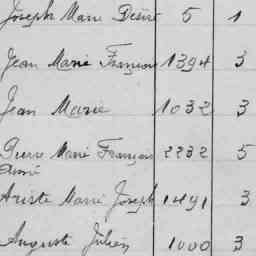 Joseph Marie Désiré 5 1
Jean Marie François 1394 3
Jean Marie 1032 3
Pierre Marie François 2232 5
Aimé
Ariste Marie Joseph 1491 3
Auguste Julien 1000 3